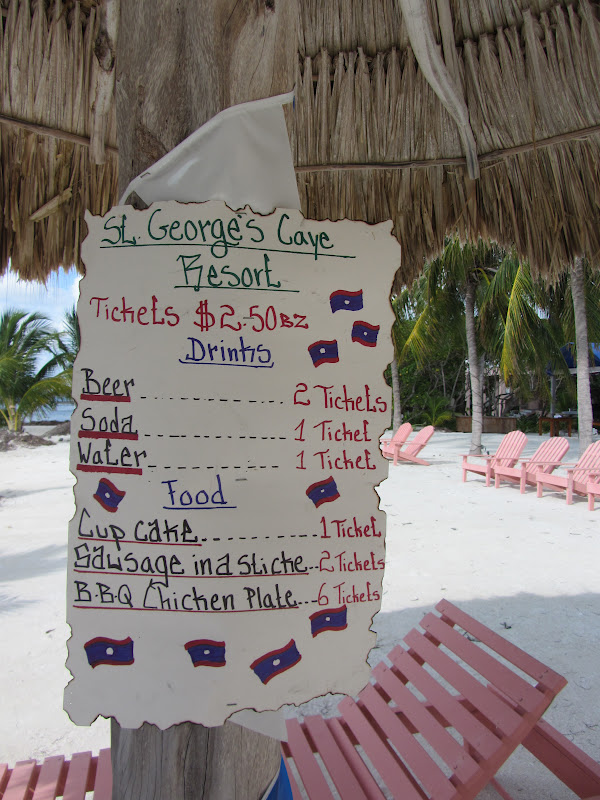 St. George's Caye
Resort
Tickets $2.50BZ
Drinks
Beer ---------------- 2 Tickets
Soda ---------------- 1 Ticket
Water ---------------- 1 Ticket
Food
Cup cake ------------ 1 Ticket
Sausage in a sticke... 2 Tickets
B.B.Q Chicken Plate... 6 Tickets